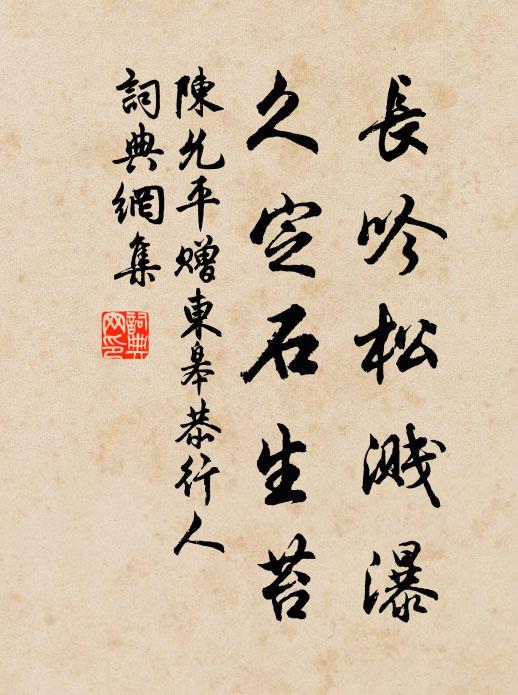 長吟松濺瀑
久定石生苔
陳允平贈東皋恭行人
詞典網集
詞典